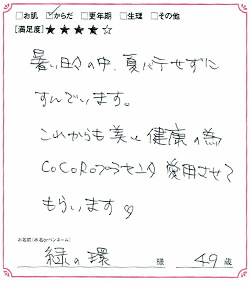 □お肌 ☑からだ □更年期 □生理 □その他
[満足度]★★★★☆
暑い日々の中、夏バテせずに
すんでいます。
これからも美と健康の為
CoCoRoプラセンタ愛用させて
もらいます♡
お名前(本名orペンネーム)
緑の環 様 49歳